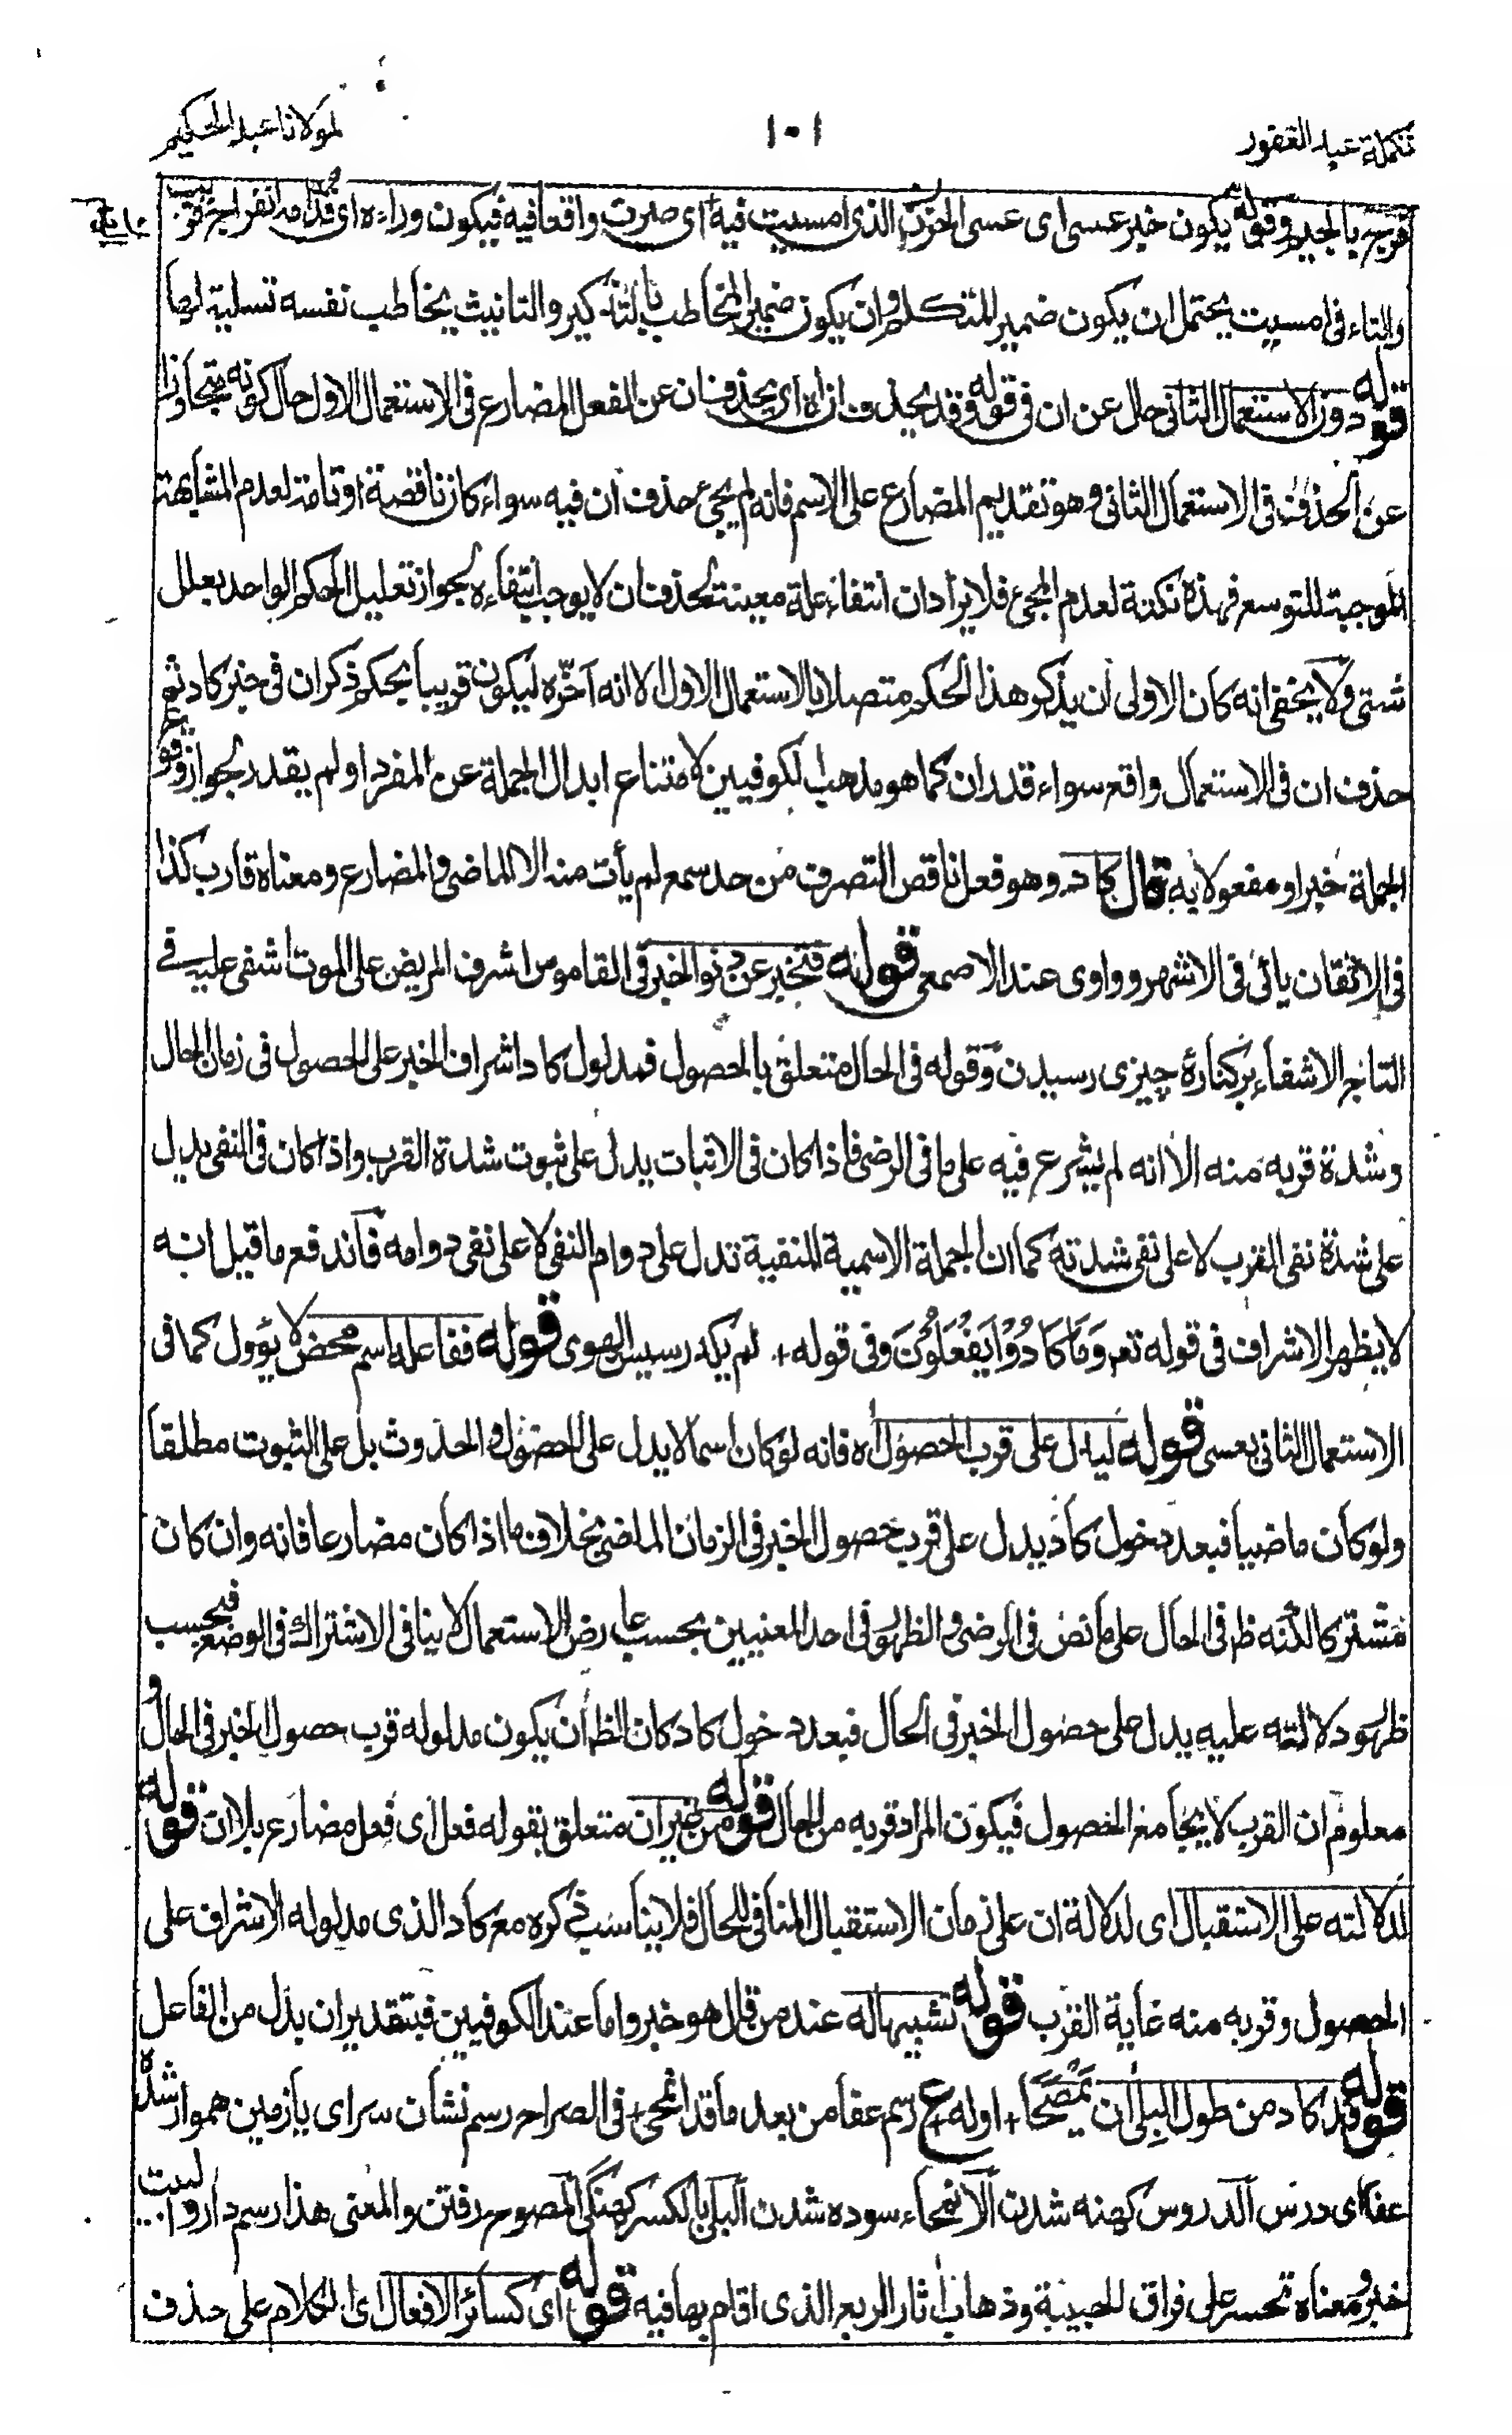 تكملة عبد الغفور
١٠١
لمولانا عبد الحكيم
فرجة بالجيم وقوله يكون خبر عسى اى عسى الحزن الذى امسيت فيه اى صرت واقعا فيه فيكون وراءه اى قدامه تفراجة قريب
والتاء فى امسيت يحتمل ان يكون ضمير المتكلم وان يكون ضمير المخاطب بالتذكير والتانيث يخاطب نفسه تسلية لها
قوله دون الاستعمال الثانى حال عن ان فى قوله وقد يحذف ان اه اى يحذف ان عن الفعل المضارع فى الاستعمال الاول حال كونه متجاوزا
عن الحذف فى الاستعمال الثانى وهو تقديم المضارع على الاسم فانه لم يجئ حذف ان فيه سواء كان ناقصة او تامة لعدم المشابهة
الموجبة للتوسع فهذه نكتة لعدم المجئ فلا يراد ان انتفاء علة معينة لحذف ان لا يوجب انتفاءه لجواز تعليل الحكم الواحد بعلل
شتى ولا يخفى انه كان الاولى ان يذكر هذا الحكم متصلا بالاستعمال الاول الا انه اخّره ليكون قريبا بحكم ذكر ان فى خبر كاد ثم
حذف ان فى الاستعمال واقع سواء قدر ان كما هو مذهب الكوفيين لامتناع ابدال الجملة عن المفرد او لم يقدر لجواز وقوع
الجملة خبرا ومفعولا به قال كاد وهو فعل ناقص التصرف من حد سمع لم يأت منه الا الماضى والمضارع ومعناه قارب كذا
فى الاتقان يائى فى الاشهر وواوى عند الاصمعى قوله فتخبر عن دنو الخبر فى القاموس اشرف المريض على الموت اشفى عليه فى
التاج الاشفاء بر كنارۀ چيزى رسيدن وقوله فى الحال متعلق بالحصول فمدلول كاد اشراف الخبر على الحصول فى زمان الحال
وشدة قربه منه الا انه لم يشرع فيه على ما فى الرضى فاذا كان فى الاثبات يدل على ثبوت شدة القرب واذا كان فى النفى يدل
على شدة نفى القرب لا على نفى شدته كما ان الجملة الاسمية المنفية تدل على دوام النفى لا على نفى دوامه فاندفع ما قيل انه
لا يظهر الاشراف فى قوله تعم وَمَا كَادُوْا يَفْعَلُوْنَ وفى قوله + لم يكد رسيس الهوى قوله ففاعله اسم محض لا يؤول كما فى
الاستعمال الثانى بعسى قوله ليدل على قرب الحصول اه فانه لو كان اسما لا يدل على الحصول والحدوث بل على الثبوت مطلقا
ولو كان ماضيا فبعد دخول كاد يدل على قرب حصول الخبر فى الزمان الماضى بخلاف ما اذا كان مضارعا فانه وان كان
مشتركا لكنه ظ فى الحال على ما نص فى الرضى والظهور فى احد المعنيين بحسب عارض الاستعمال لا ينافى الاشتراك فى الوضع فبحسب
ظهور دلالته عليه يدل على حصول الخبر فى الحال فبعد دخول كاد كان الظ ان يكون مدلوله قرب حصول الخبر فى الحال و
معلوم ان القرب لا يجامع الحصول فيكون المراد قربه من الحال قوله من غير ان متعلق بقوله فعل اى فعل مضارع بلا ان قوله
لدلالته على الاستقبال اى لدلالة ان على زمان الاستقبال المنافى للحال فلا يناسب ذكره مع كاد الذى مدلوله الاشراف على
الحصول وقربه منه غاية القرب قوله تشبيها له عند من قال هو خبر واما عند الكوفيين فبتقدير ان بدل من الفاعل
قوله قد كاد من طول البلى ان يَمْصَحَا + اوله ع رسم عفا من بعد ما قد انمحى + فى الصراح رسم نشان سراى يا زمين هموار شده
عفا اى درس الدروس كهنه شدن الانمحاء سوده شدن البلى بالكسر كهنگى المصوح رفتن والمعنى هذا رسم دار و ليست
خبر ومعناه تحسر على فراق الحبيبة وذهاب اثار الربع الذى اقام بها فيه قوله اى كسائر الافعال اى الكلام على حذف